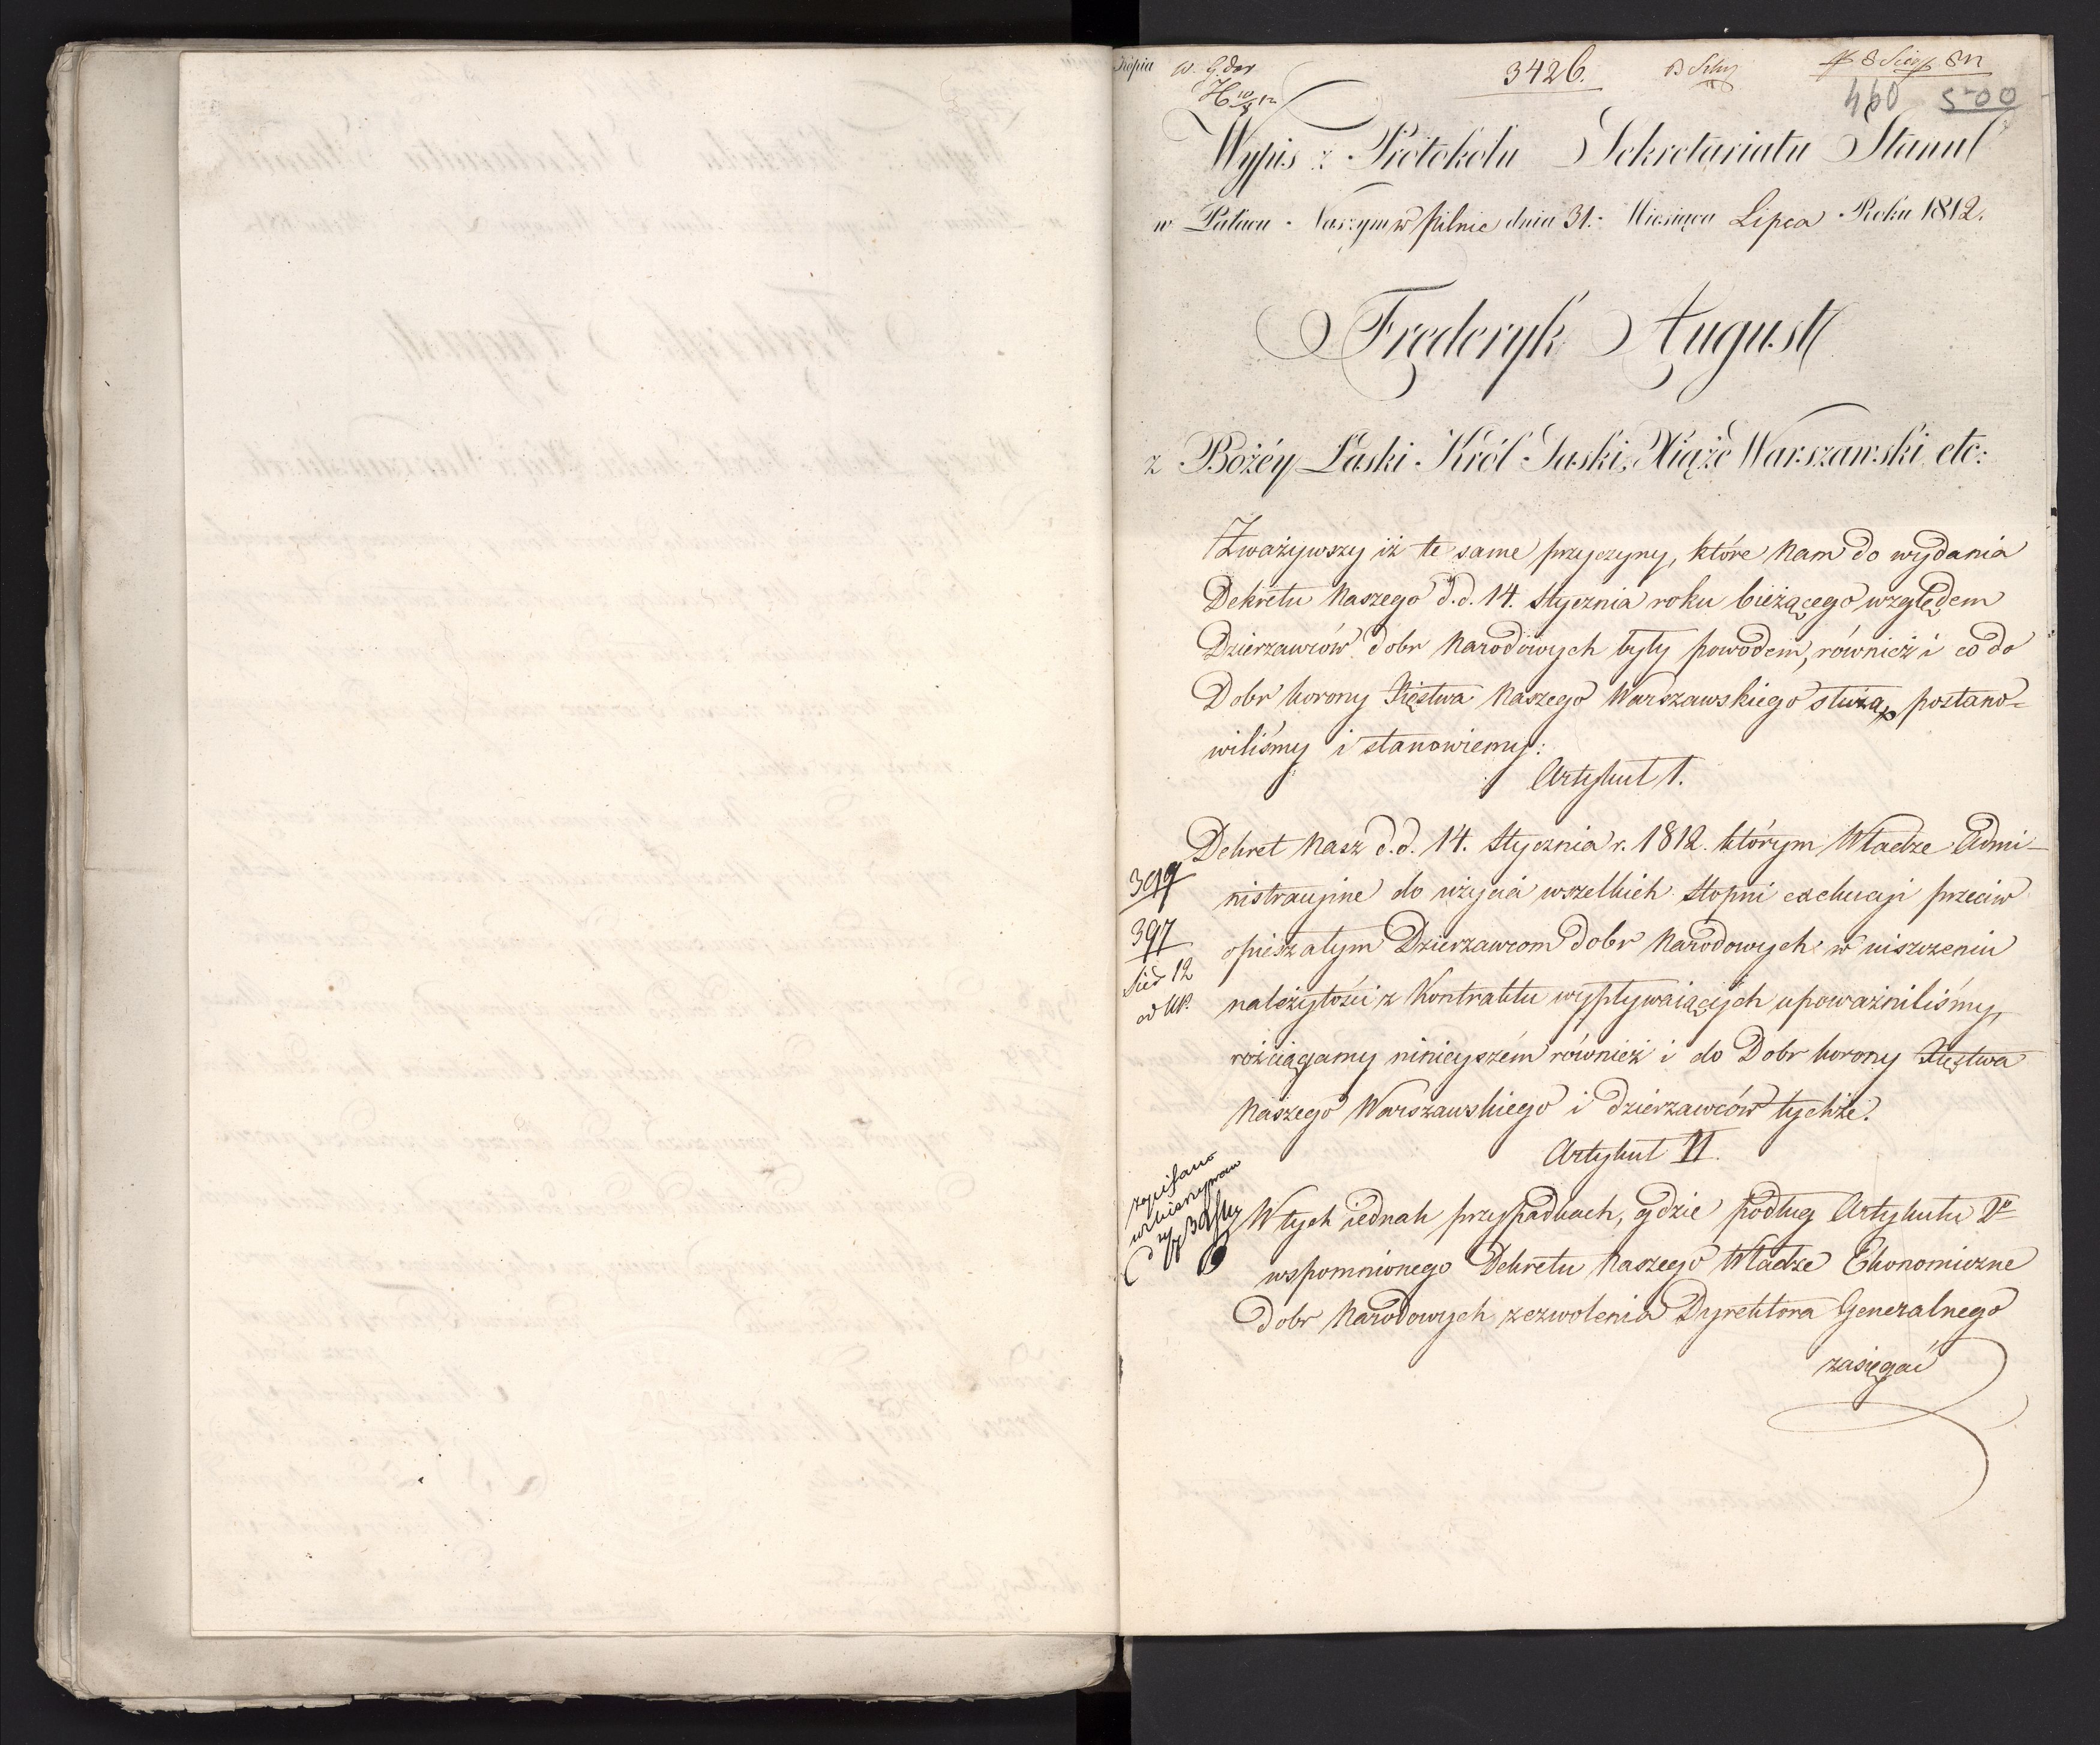 Kopia
3426.
460 500
Wypis z Protokołu Sekretariatu Stanu
w Pałacu Naszym w Pilnic dnia 31. Miesiąca Lipca Roku 1812.
Fryderyk August
z Bożéy Łaski Król Saski, Xiąże Warszawski, etc:
Zważywszy iż te same przyczyny, które Nam do wydania
Dekretu Naszego d.d. 14. Stycznia roku bieżącego względem
Dzierzawców dobr Narodowych były powodem, również i co do
Dobr korony Xięstwa Naszego Warszawskiego służą, postano=
wiliśmy i stanowiemy:
Artykuł 1.
Dekret Nasz d.d. 14. Stycznia r. 1812. którym Władze Admi-
nistracyine do użycia wszelkich stopni exekucyi przeciw
opieszałym Dzierzawcom dobr Narodowych w uiszczeniu
należytości z Kontraktu wypływaiących upoważniliśmy,
rozciągamy ninieyszém również i do Dobr korony Xięstwa
Naszego Warszawskiego i dzierzawców tychże.
Artykuł II.
W tych iednak przypadkach, gdzie podług Artykułu 2°
wspomnionego Dekretu Naszego Władze Ekonomiczne
dobr Narodowych zezwolenia Dyrektora Generalnego
zasięgać
399
397
zapisano